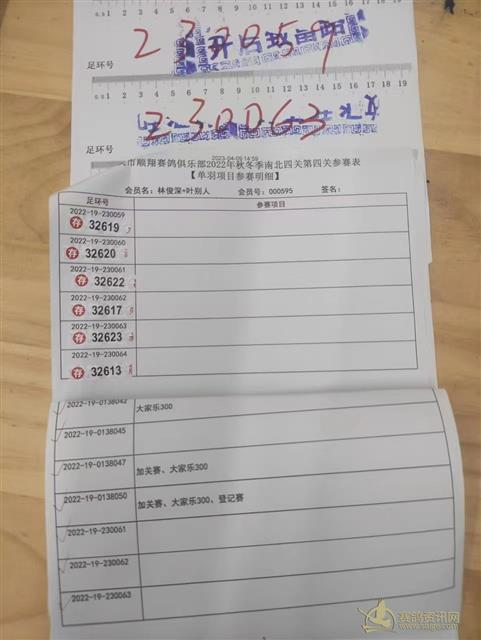 230059
足环号
0.5 1 2 3 4 5 6 7 8 9 10 11 12 13 14 15 16 17 18 19
230063
足环号
2023-04-09 14:59
市顺翔赛鸽俱乐部2022年秋冬季南北四关第四关参赛表
【单羽项目参赛明细】
会员名：林俊深+叶别人 会员号：000595 签名：
足环号 参赛项目
2022-19-230059
存 32619
2022-19-230060
存 32620
2022-19-230061
存 32622
2022-19-230062
存 32617
2022-19-230063
存 32623
2022-19-230064
存 32613
2022-19-0138042 大家乐300
2022-19-0138045
2022-19-0138047 加关赛、大家乐300
2022-19-0138050 加关赛、大家乐300、登记赛
2022-19-230061
2022-19-230062
2022-19-230063
赛鸽资讯网